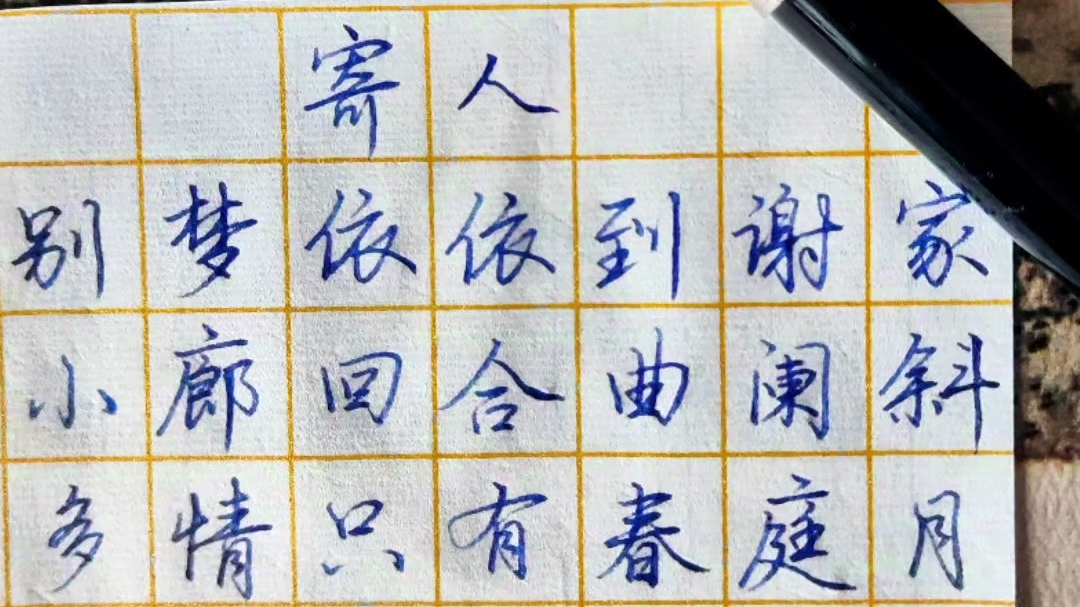 寄人
别梦依依到谢家
小廊回合曲阑斜
多情只有春庭月